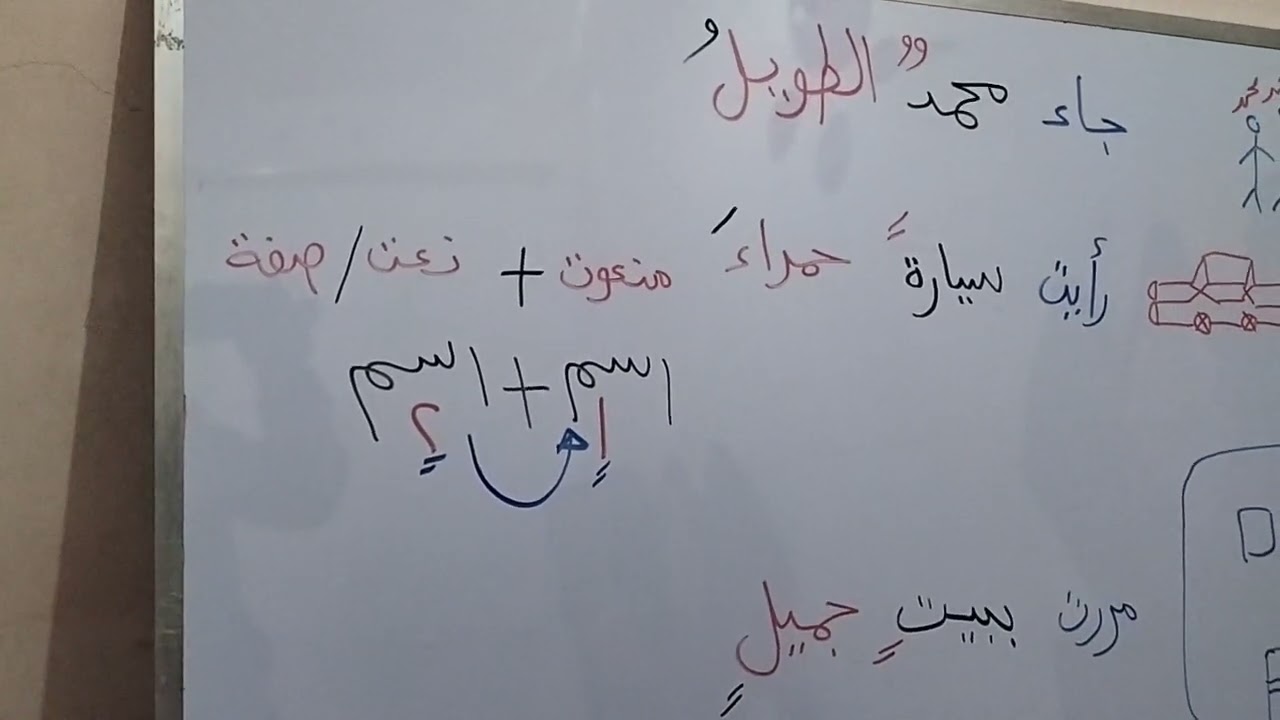 جاء محمدٌ الطويلُ
رأيت سيارةً حمراءَ منعوت + نعت/صفة
اسم + اسم
مررت ببيتٍ جميلٍ